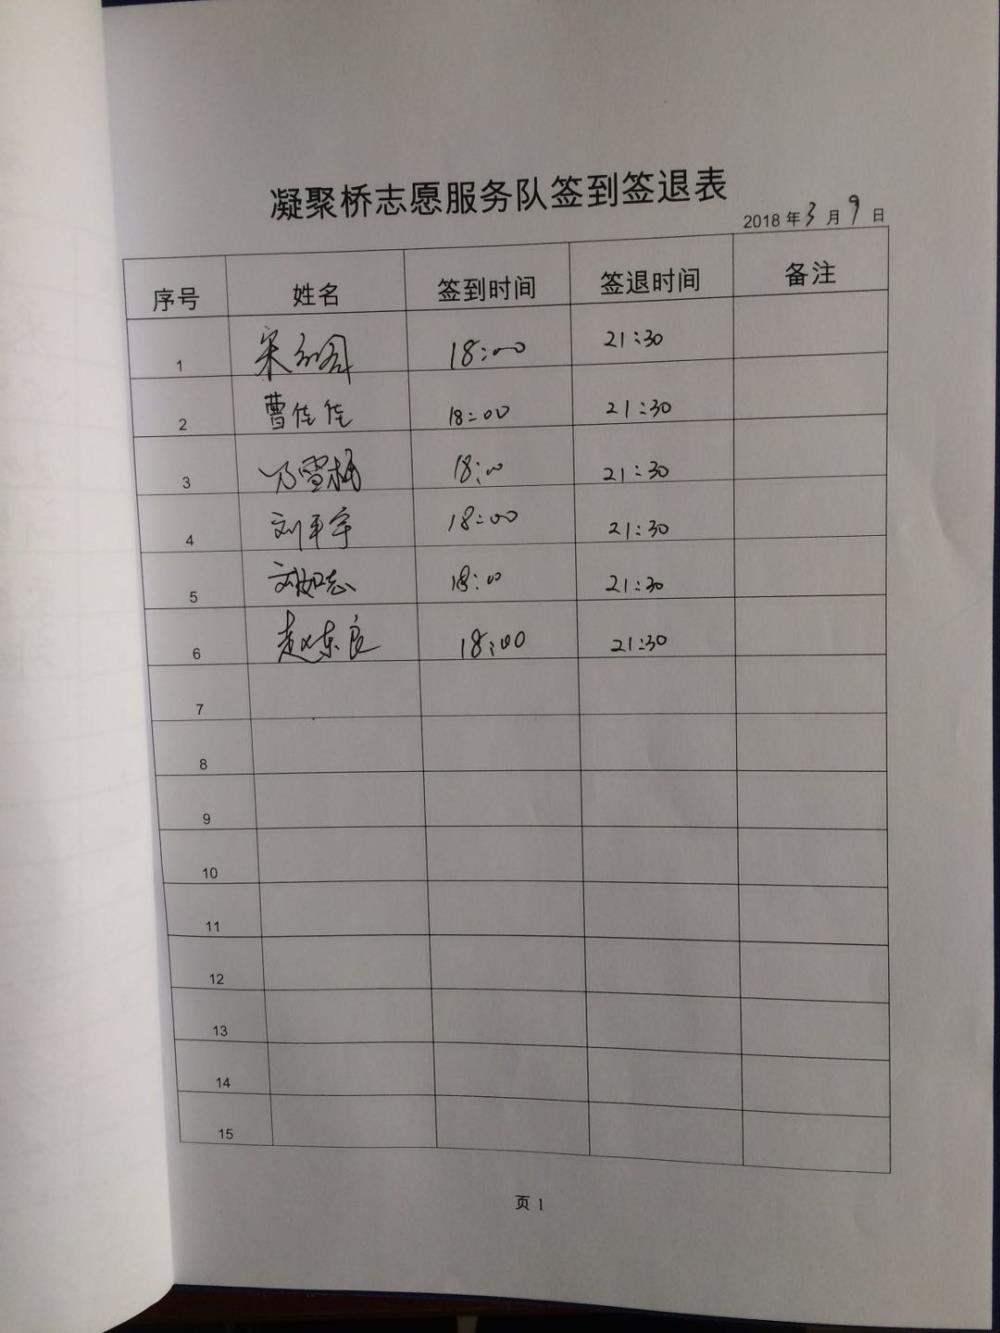 凝聚桥志愿服务队签到签退表
2018 年 3 月 9 日
序号 姓名 签到时间 签退时间 备注
1 宋 18:00 21:30
2 曹佳佳 18:00 21:30
3 雪 18:00 21:30
4 刘平宇 18:00 21:30
5 刘如志 18:00 21:30
6 赵东良 18:00 21:30
7
8
9
10
11
12
13
14
15
页 1